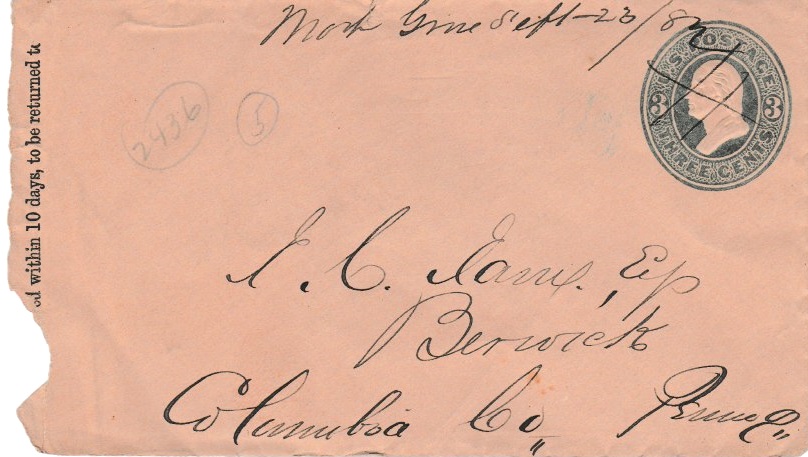 Sept-23/82
U.S. POSTAGE
3 3
THREE CENTS
2436
5
ed within 10 days, to be returned to
I. C. Jam
Berwick
Columbia Co,, Penna,,